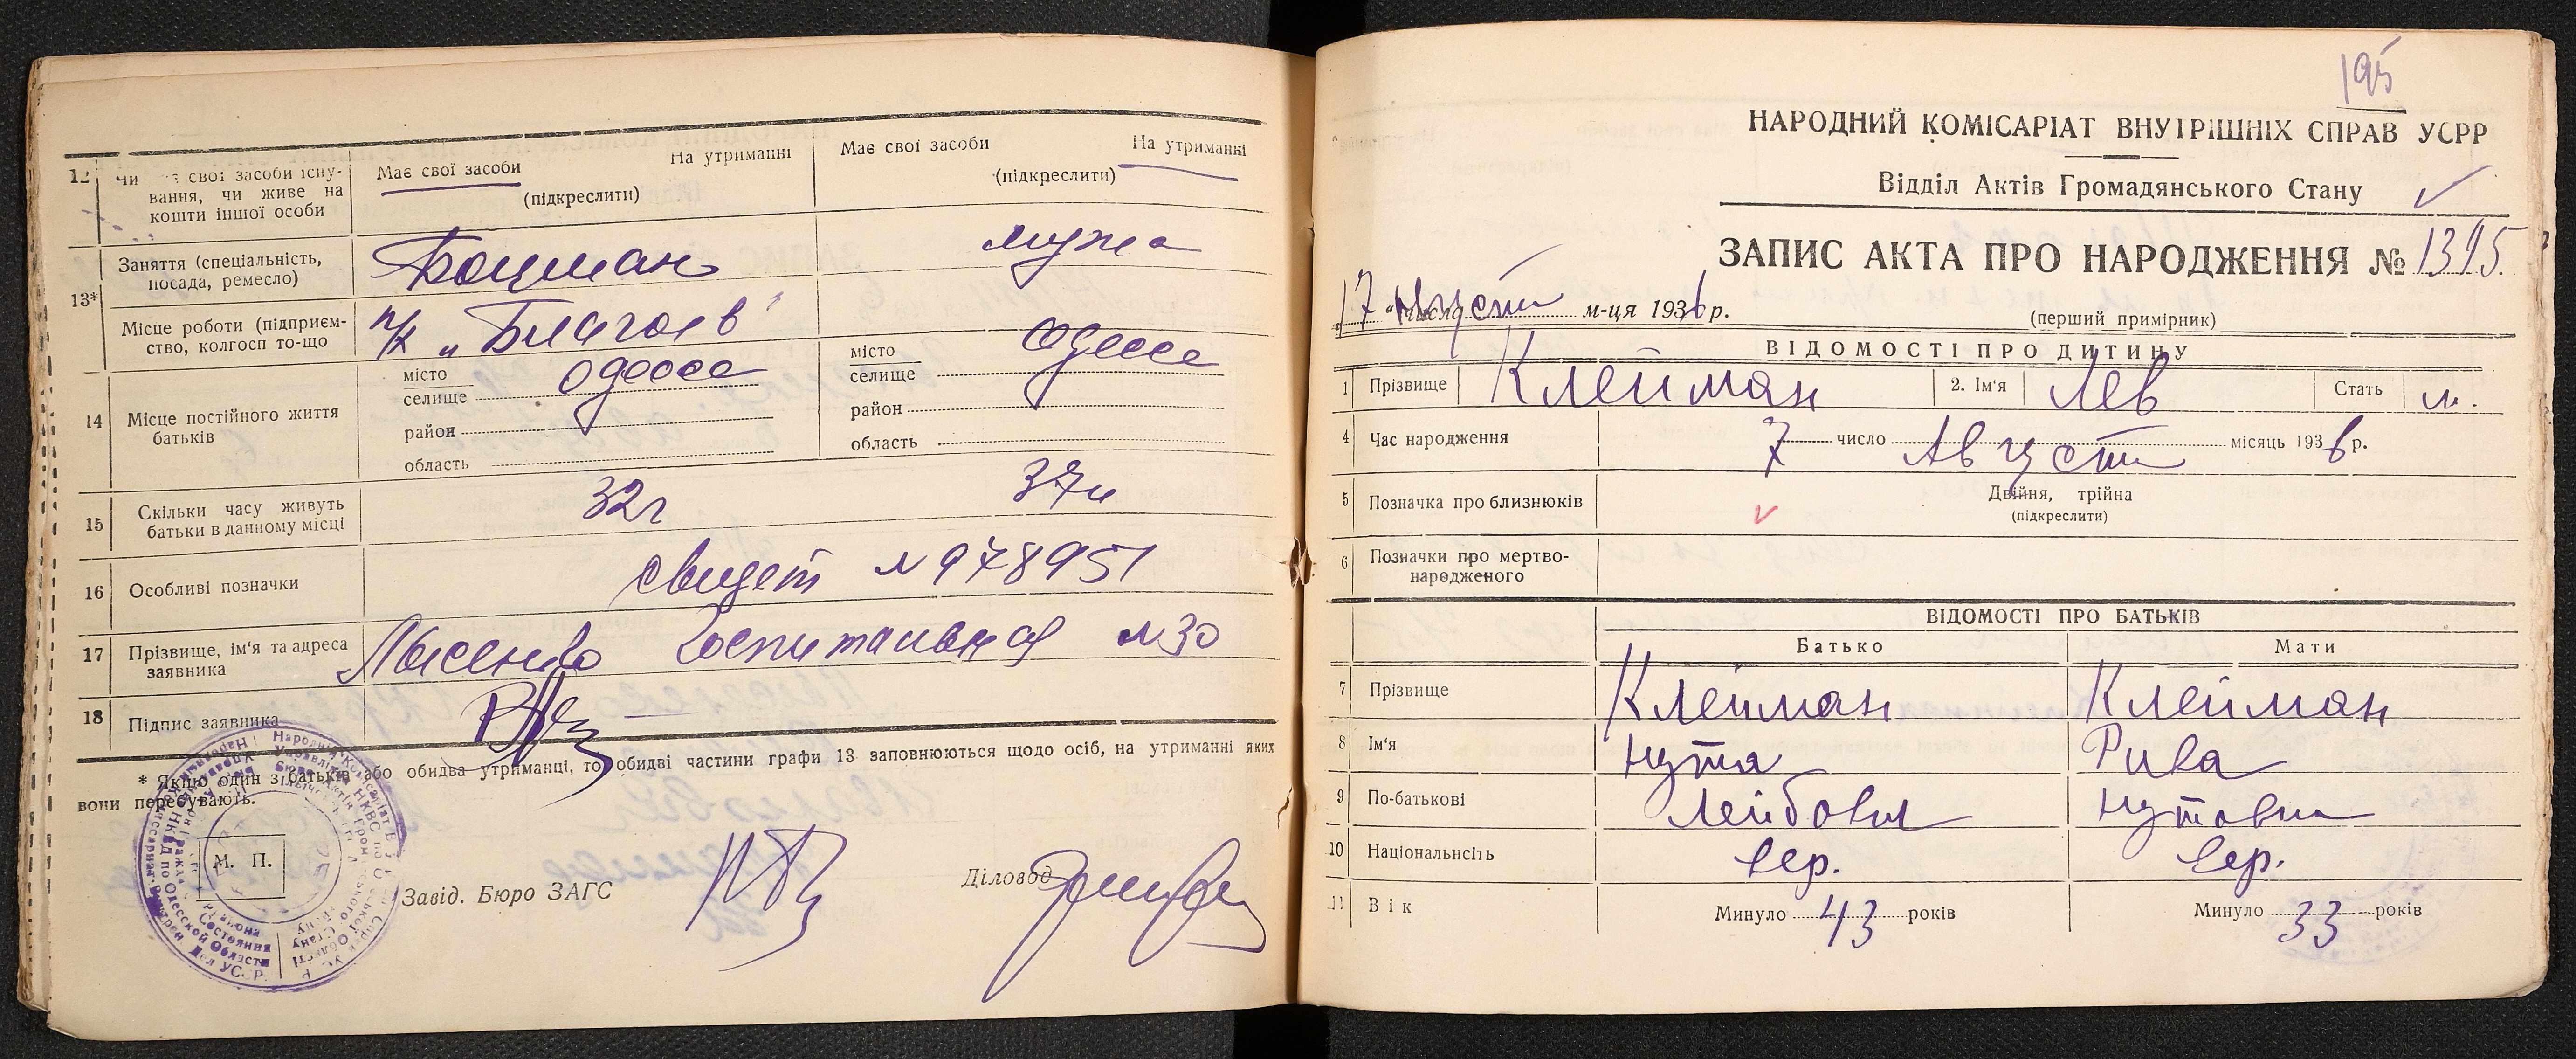 12 Чи має свої засоби існу-
вання, чи живе на
кошти іншої особи
Має свої засоби На утриманні
(підкреслити)
Має свої засоби На утриманні
(підкреслити)
13* Заняття (спеціальність,
посада, ремесло)
Боцман
мужа
Місце роботи (підприєм-
ство, колгосп то-що
п/х „Благоев"
14 Місце постійного життя
батьків
місто
селище Одесса
район
область
місто
селище Одесса
район
область
15 Скільки часу живуть
батьки в данному місці
32г
37г
16 Особливі позначки
свидет №978951
17 Прізвище, ім'я та адреса
заявника
Госпитальная №30
18 Підпис заявника
* Якщо один з батьків або обидва утриманці, то обидві частини графи 13 заповнюються щодо осіб, на утриманні яких
вони перебувають.
М. П.
Завід. Бюро ЗАГС
Діловод
195
НАРОДНИЙ КОМІСАРІАТ ВНУТРІШНІХ СПРАВ УСРР
Відділ Актів Громадянського Стану
ЗАПИС АКТА ПРО НАРОДЖЕННЯ № 1395
17 " Август м-ця 1936 р.
(перший примірник)
ВІДОМОСТІ ПРО ДИТИНУ
1 Прізвище Клейман 2. Ім'я Лев Стать м.
4 Час народження 7 число Август місяць 1936 р.
5 Позначка про близнюків Двійня, трійна
(підкреслити)
6 Позначки про мертво-
народженого
ВІДОМОСТІ ПРО БАТЬКІВ
Батько Мати
7 Прізвище Клейман Клейман
8 Ім'я Нута Рива
9 По-батькові Лейбович Нутовна
10 Національність евр. евр.
11 Вік Минуло 43 років Минуло 33 років